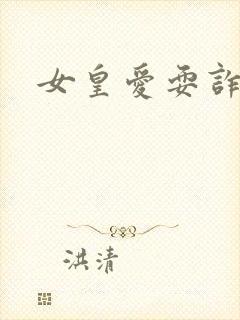 女皇愛耍詐
洪清